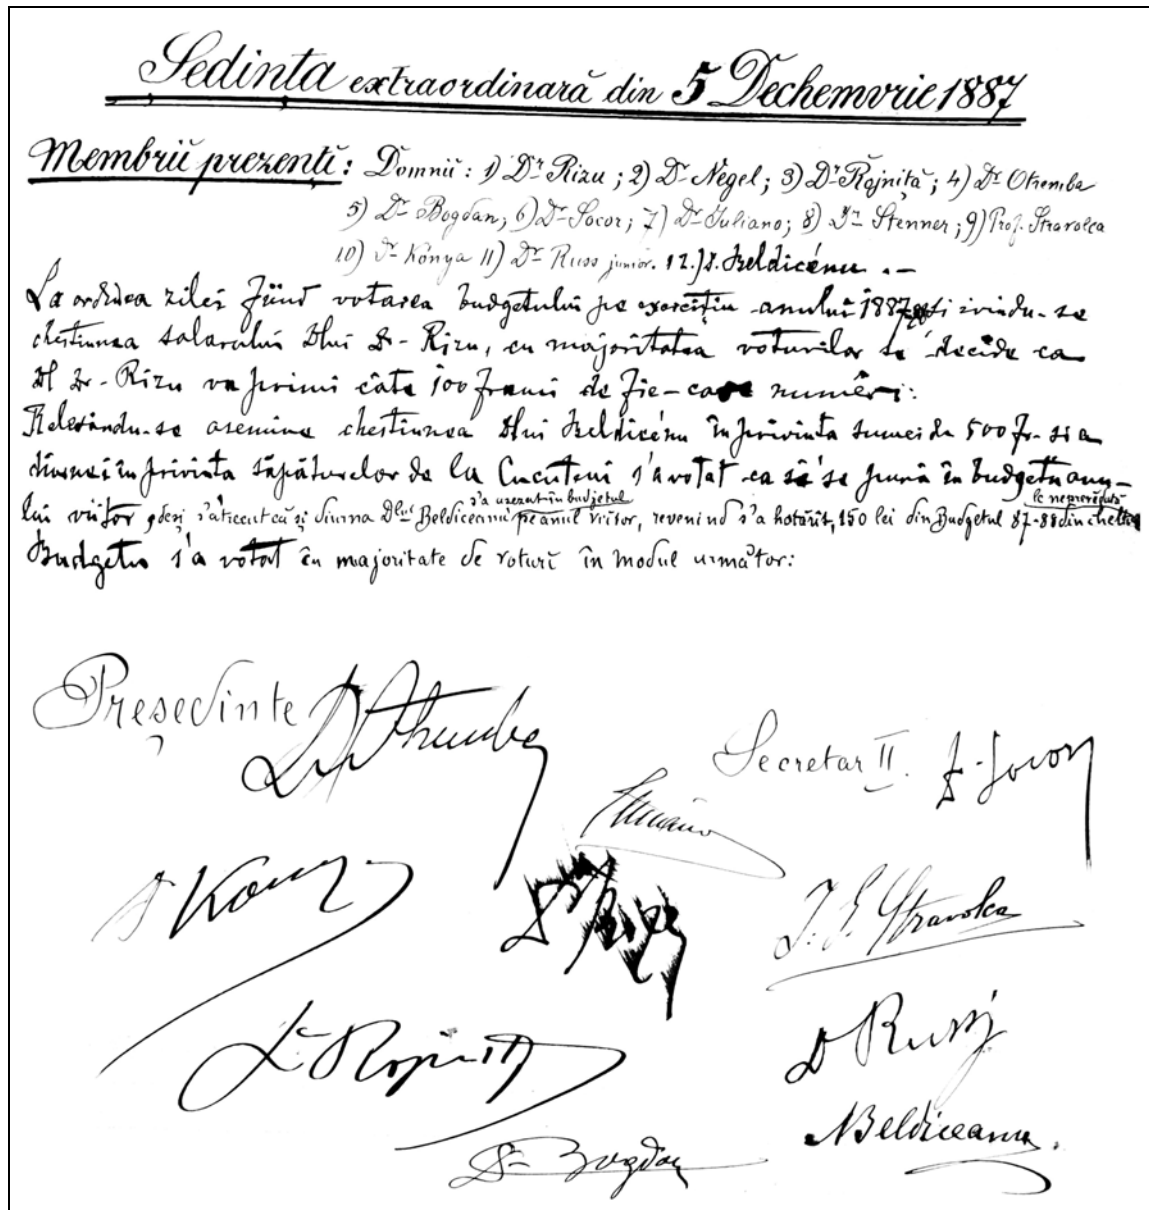 Sedința extraordinară din 5 Dechemvrie 1887
Membrii prezenți: Domnii: 1) Dr Rizu; 2) Dr Negel; 3) Dr Rojniță; 4) Dr Otremba
5) Dr Bogdan; 6) Dr Socor; 7) Dr Iuliano; 8) Dr Stenner; 9) Prof. Stravolca
10) Dr Kónya 11) Dr Russ junior. 12.) D. Beldicénu. —
La ordinea zilei fiind votarea budgetului pe exercițiu anului 1887 și ivindu-se
chestiunea salarului Dlui Dr- Rizu, cu majoritatea voturilor se decide ca
Dl Dr- Rizu va primi câte 100 franci de fie-care numĕr:
Relevându-se asemine chestiunea Dlui Beldicénu în privința sumei de 500 fr- si a
diurnei în privința săpăturelor de la Cucuteni s'a votat ca să se pună în budgetu anu-
lui viitor și diurna Dlui Beldiceanu s'a asezat în budjetul pe anul viitor, revenind s'a hotărît, 150 lei din Budgetul 87-88 din
Budgetu s'a votat cu majoritate de voturĭ în modul următor:
Președinte Dr Otremba
Secretar II. Socor
Iuliano
Dr Kony
Dr Rizu
I. G. Stravolca
Dr Rojniță
Dr Russ j
Dr Bogdan
N Beldiceanu.